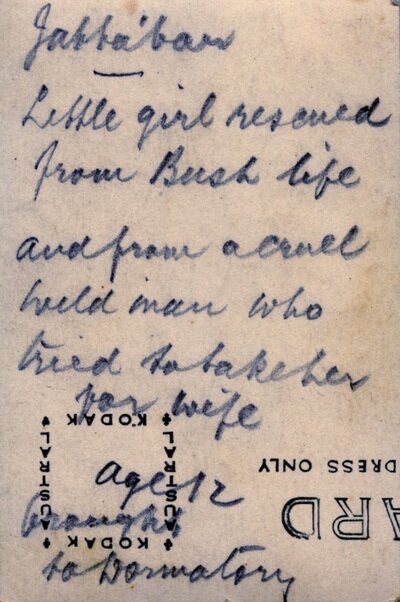 Little girl rescued
from Bush life
and from a cruel
wild man who
tried to take her
for wife
Age 12
brought
to Dormatory
KODAK
AUSTRAL
AUSTRAL
KODAK
DRESS ONLY
ARD